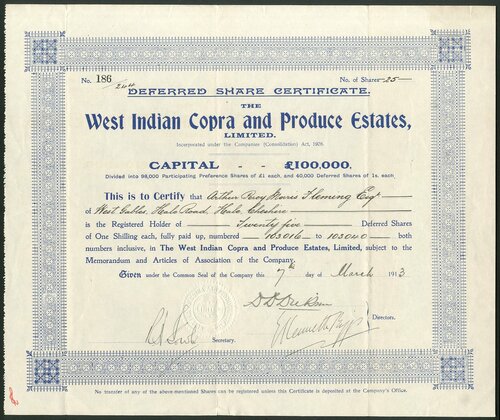 No. 186
244
No. of Shares 25
DEFERRED SHARE CERTIFICATE.
THE
West Indian Copra and Produce Estates,
LIMITED.
Incorporated under the Companies (Consolidation) Act, 1908.
CAPITAL - - £100,000.
Divided into 98,000 Participating Preference Shares of £1 each, and 40,000 Deferred Shares of 1s. each.
This is to Certify that Arthur Percy Morris Fleming Esqr
of West Gables, Hale Road, Hale, Cheshire
is the Registered Holder of Twenty five Deferred Shares
of One Shilling each, fully paid up, numbered 103016 to 103040 both
numbers inclusive, in The West Indian Copra and Produce Estates, Limited, subject to the
Memorandum and Articles of Association of the Company.
Given under the Common Seal of the Company this 7th day of March 1913
Directors.
Secretary.
No transfer of any of the above-mentioned Shares can be registered unless this Certificate is deposited at the Company's Office.